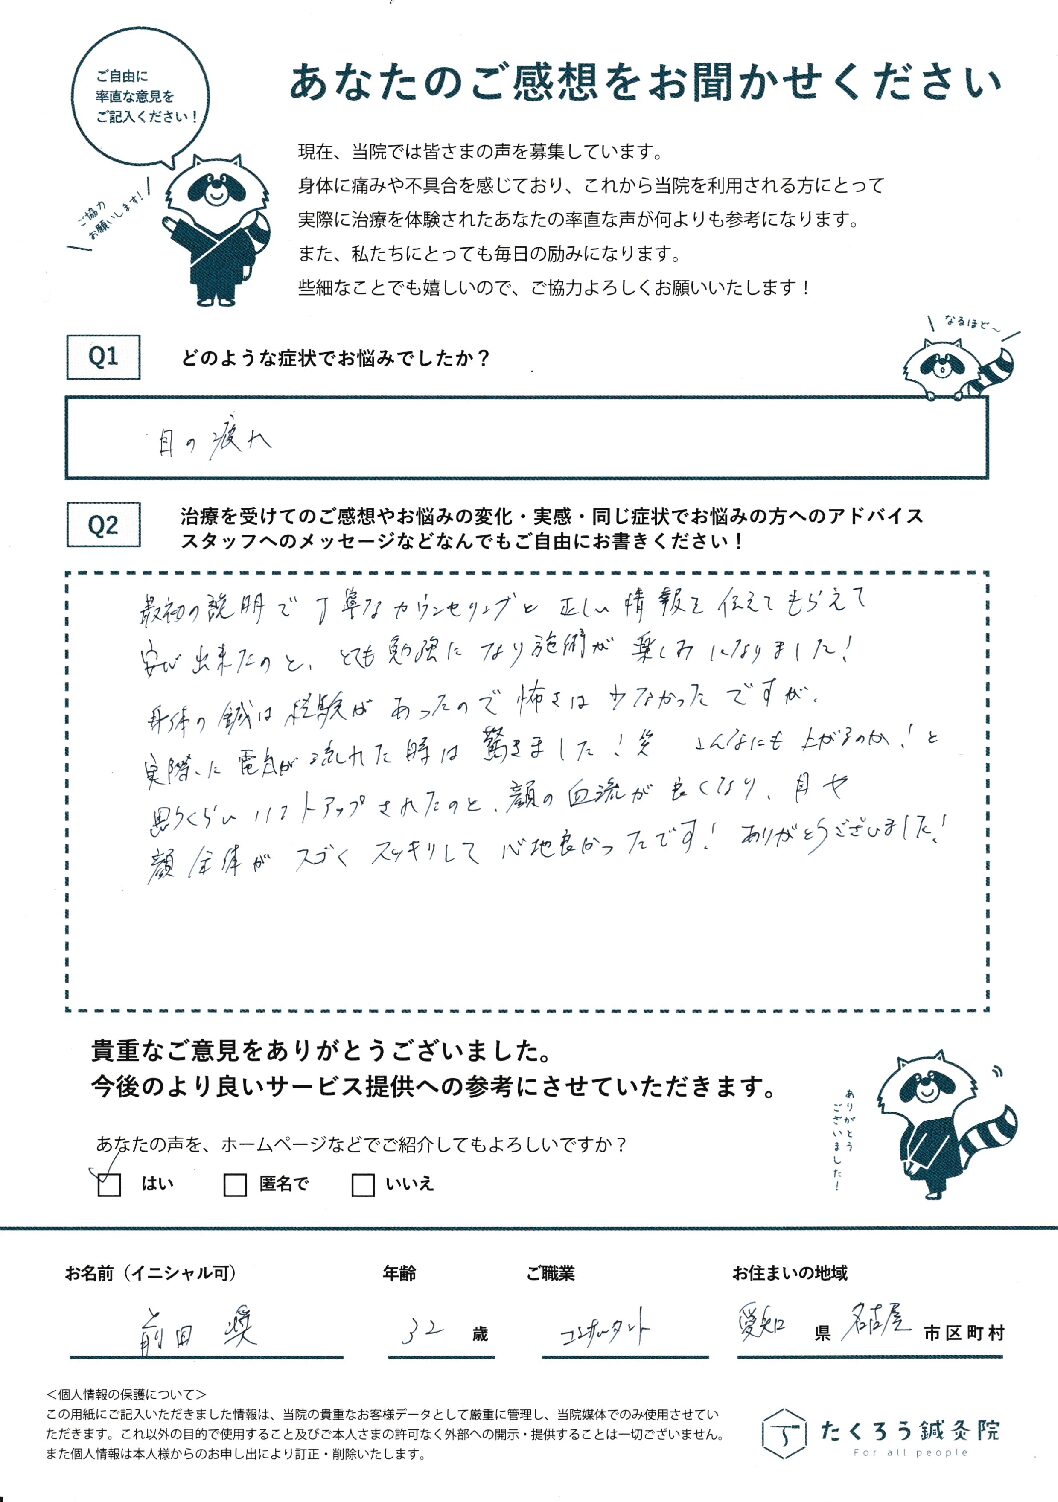 ご自由に
率直な意見を
ご記入ください！
あなたのご感想をお聞かせください
ご協力
お願いします！
現在、当院では皆さまの声を募集しています。
身体に痛みや不具合を感じており、これから当院を利用される方にとって
実際に治療を体験されたあなたの率直な声が何よりも参考になります。
また、私たちにとっても毎日の励みになります。
些細なことでも嬉しいので、ご協力よろしくお願いいたします！
なるほど〜
Q1 どのような症状でお悩みでしたか？
目の疲れ
Q2 治療を受けてのご感想やお悩みの変化・実感・同じ症状でお悩みの方へのアドバイス
スタッフへのメッセージなどなんでもご自由にお書きください！
最初の説明で丁寧なカウンセリングと正しい情報を伝えてもらえて
安心出来たのと、とても勉強になり施術が楽しみになりました！
身体の鍼は経験があったので怖さは少なかったですが、
実際に電気が流れた時は驚きました！笑 こんなにも上がるのか！と
思うくらいリフトアップされたのと、顔の血流が良くなり、目や
顔全体がスゴくスッキリして心地良かったです！ ありがとうございました！
貴重なご意見をありがとうございました。
今後のより良いサービス提供への参考にさせていただきます。
ありがとう
ございました！
あなたの声を、ホームページなどでご紹介してもよろしいですか？
はい 匿名で いいえ
お名前（イニシャル可） 年齢 ご職業 お住まいの地域
前田 奨 32 歳 コンサルタント 愛知 県 名古屋 市区町村
＜個人情報の保護について＞
この用紙にご記入いただきました情報は、当院の貴重なお客様データとして厳重に管理し、当院媒体でのみ使用させてい
ただきます。これ以外の目的で使用すること及びご本人さまの許可なく外部への開示・提供することは一切ございません。
また個人情報は本人様からのお申し出により訂正・削除いたします。
たくろう鍼灸院
For all people